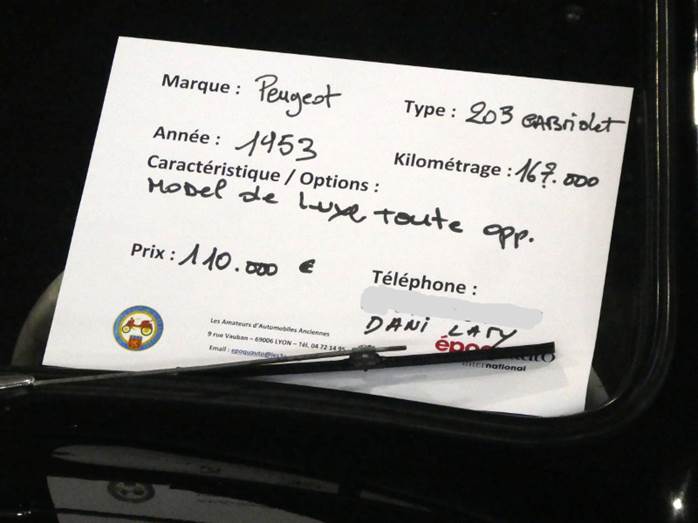 Marque : Peugeot
Type : 203 CABRiolet
Année : 1953
Kilométrage : 167.000
Caractéristique / Options :
MODEL de Luxe Toute opp.
Prix : 110.000 €
Téléphone :
DANI LATY
Les Amateurs d'Automobiles Anciennes
9 rue Vauban – 69006 LYON – Tél. 04 72 14 95
Email :
époqu'auto
international